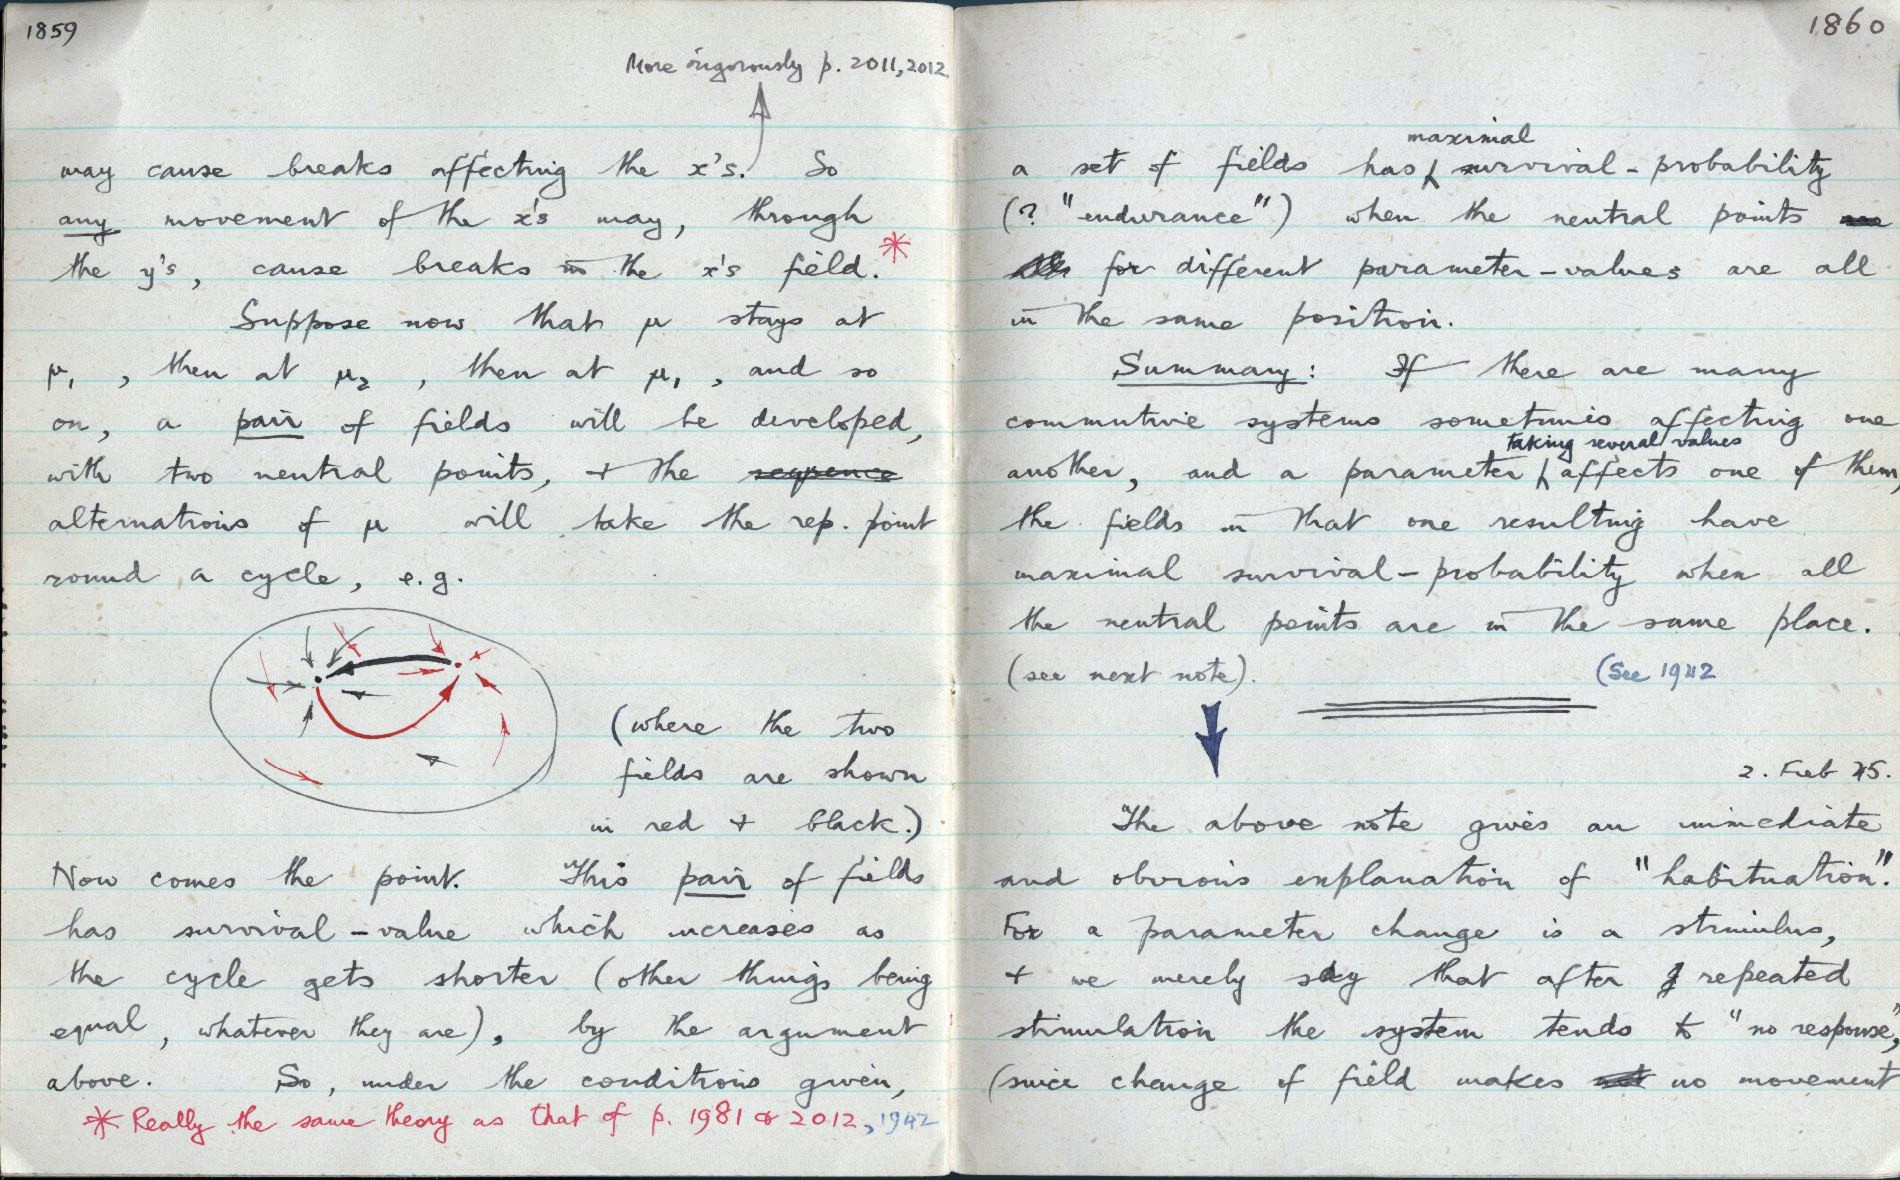 1859
More rigorously p. 2011, 2012.
may cause breaks affecting the x's. So
any movement of the x's may, through
the y's, cause breaks in the x's field.*
Suppose now that μ stays at
μ₁, then at μ₂, then at μ₁, and so
on, a pair of fields will be developed,
with two neutral points, + the sequence
alternations of μ will take the rep. point
round a cycle, e.g.
(where the two
fields are shown
in red + black.)
Now comes the point. This pair of fields
has survival-value which increases as
the cycle gets shorter (other things being
equal, whatever they are), by the argument
above. So, under the conditions given,
* Really the same theory as that of p. 1981 & 2012, 1942
1860
maximal
a set of fields has survival-probability
(? "endurance") when the neutral points are
for different parameter-values are all
in the same position.
Summary: If there are many
commutive systems sometimes affecting one
taking several values
another, and a parameter affects one of them,
the fields in that one resulting have
maximal survival-probability when all
the neutral points are in the same place.
(see next note). (See 1942
2. Feb 45.
The above note gives an immediate
and obvious explanation of "habituation".
For a parameter change is a stimulus,
+ we merely say that after repeated
stimulation the system tends to "no response",
(since change of field makes not no movement